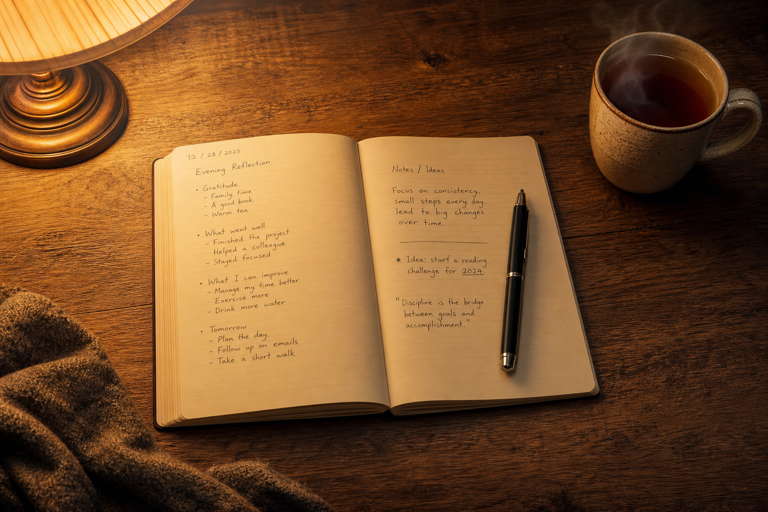 12 / 28 / 2023
Evening Reflection
• Gratitude
- Family time
- A good book
- Warm tea
• What went well
- Finished the project
- Helped a colleague
- Stayed focused
• What I can improve
- Manage my time better
- Exercise more
- Drink more water
• Tomorrow
- Plan the day,
- Follow up on emails
- Take a short walk
Notes / Ideas
Focus on consistency,
small steps every day,
lead to big changes
over time.
* Idea: start a reading
challenge for 2024.
"Discipline is the bridge
between goals and
accomplishment."